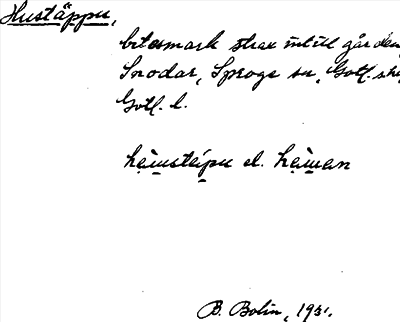 Hustäppu,
betesmark strax intill gården
Snodar, Sproge sn, Gotl. s.
Gotl. l.
hæimstäipu el. hæiman
B. Bolin, 1931.